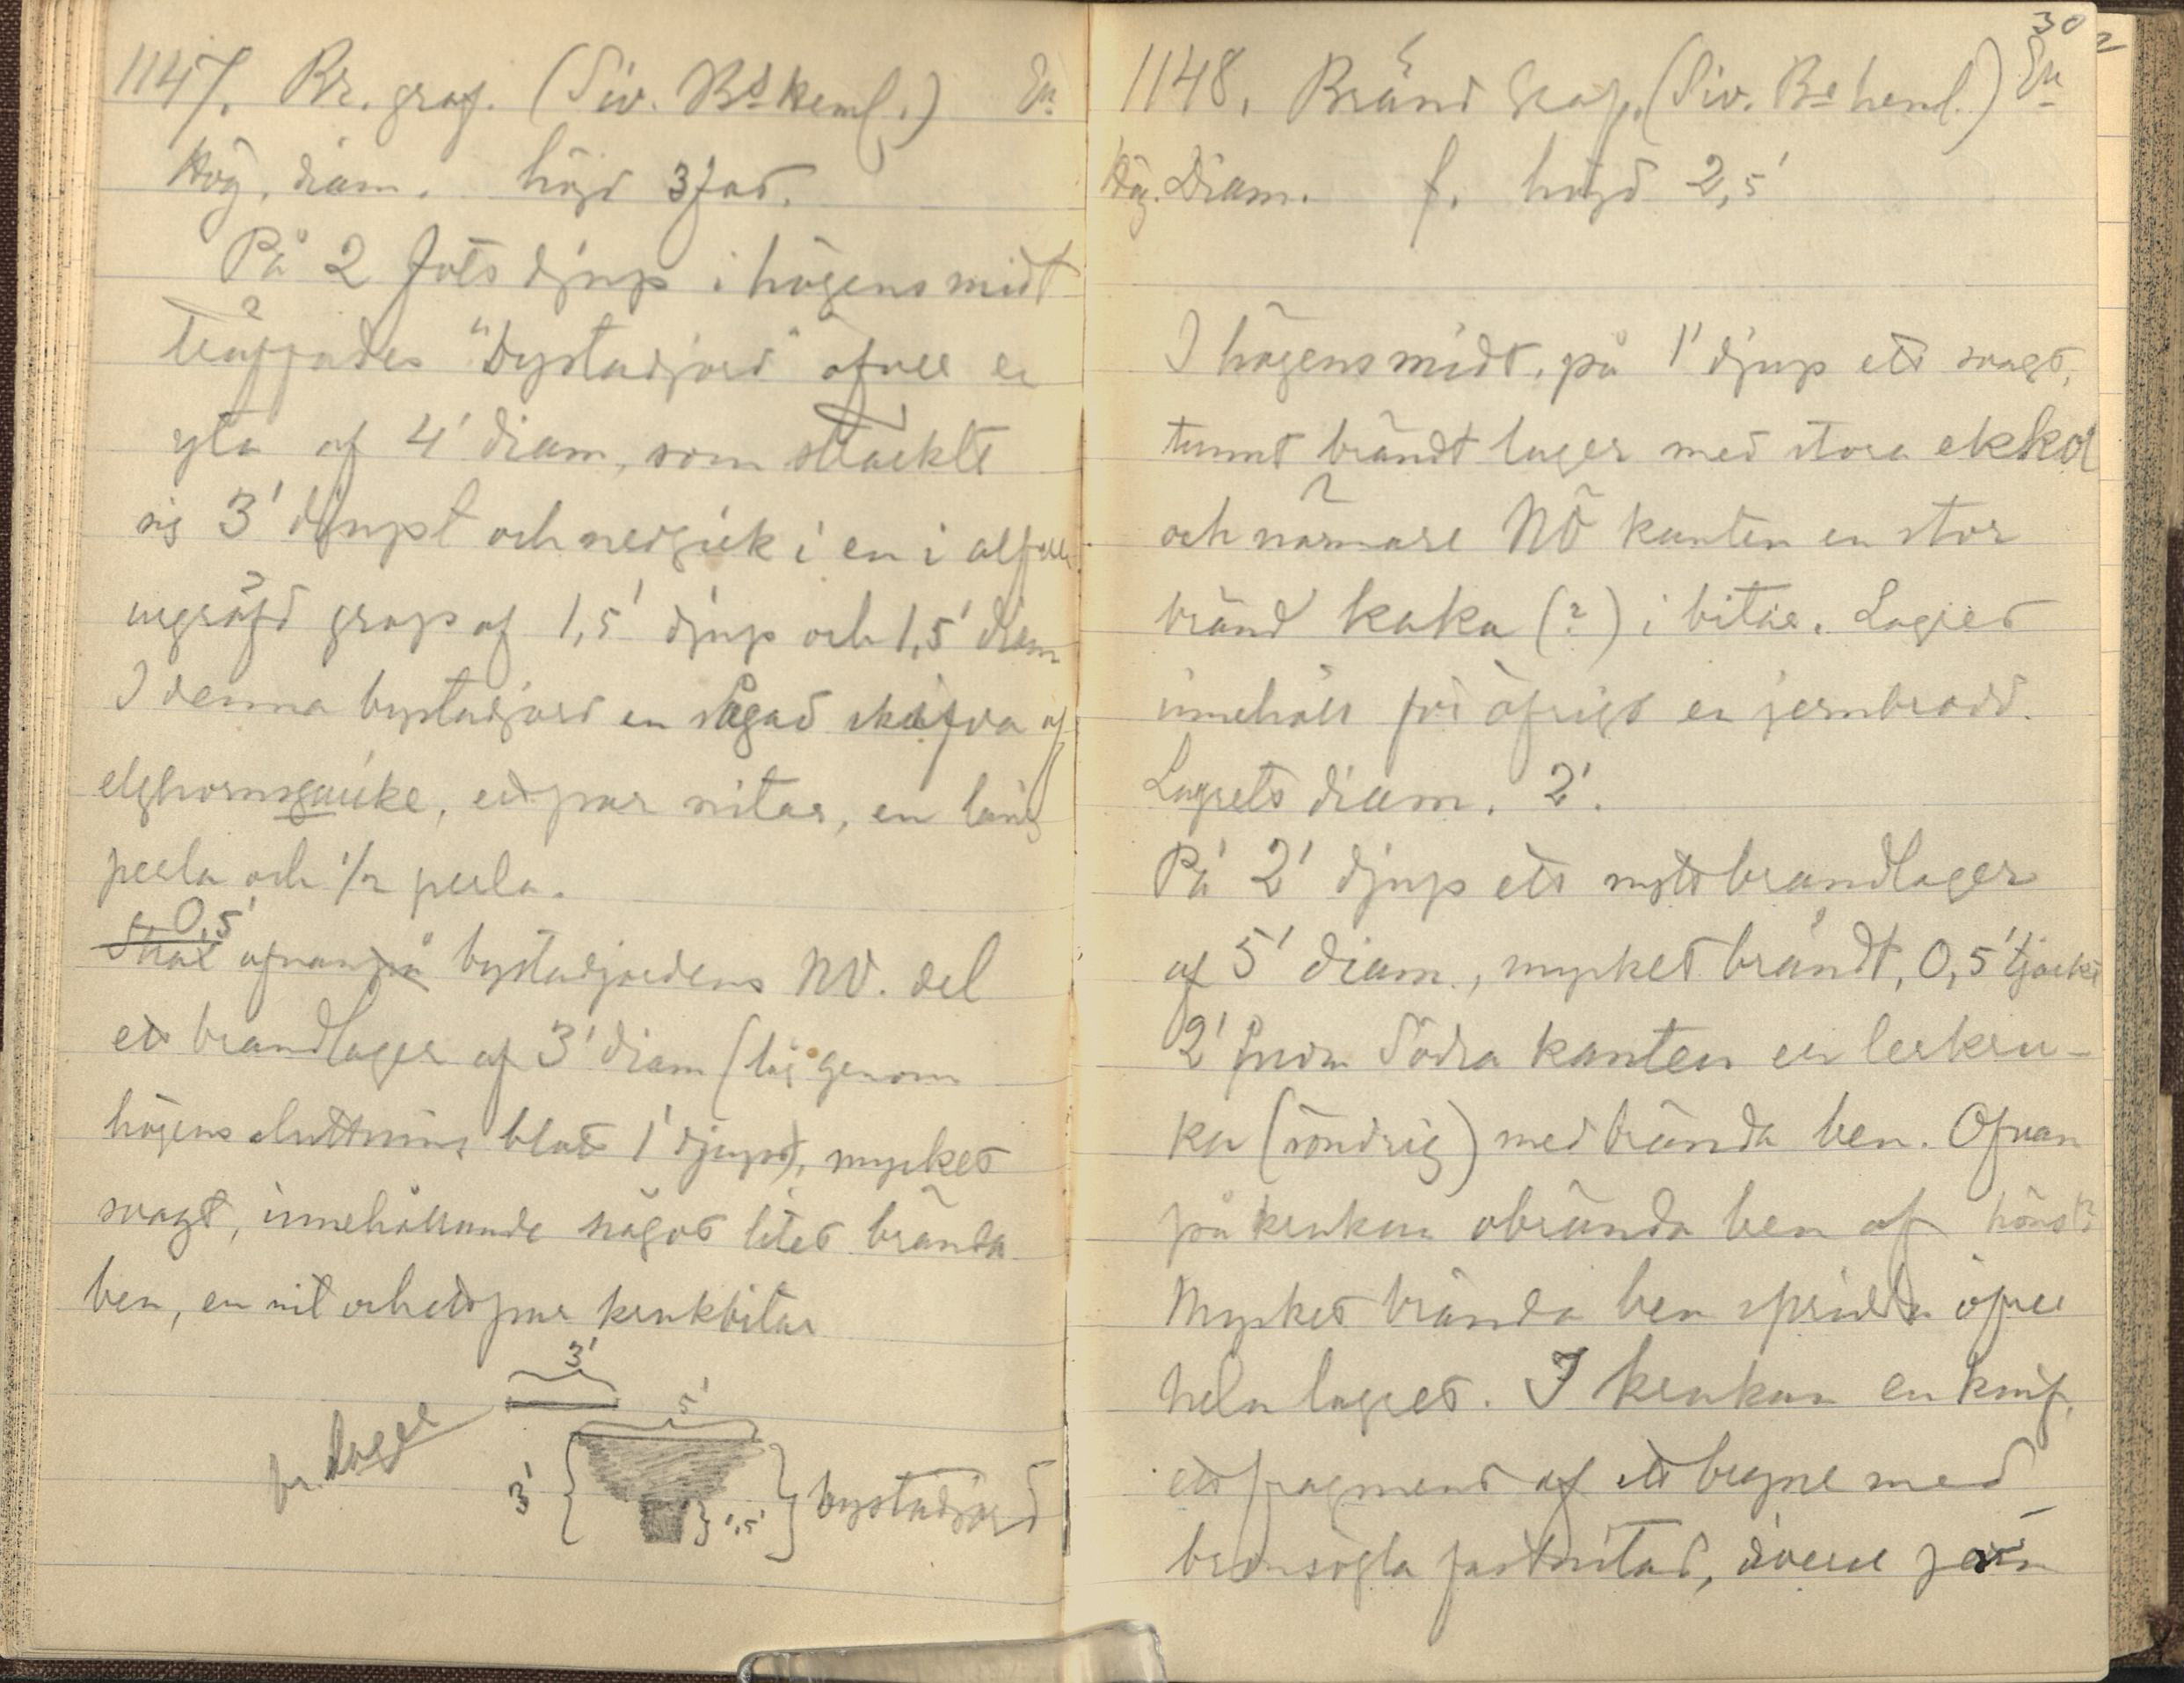 1147. Br. graf. (Siv. Bs heml.) En
Hög. diam. höjd 3 fot.
På 2 fots djup i högens midt
träffades "bystadjord" öfver en
yta af 4' diam, som sträckte
sig 3' djupt och nedgick i en i alfven
urgräfd grop af 1,5' djup och 1,5' diam
I denna bystadjord en sågad skifva af
elghorn, ett par nitar, en lång
perla och 1/2 perla.
0,5'
Strax ofvanpå bystadjordens NV. del
ett brandlager af 3' diam (låg genom
högens sluttning blott 1' djupt), mycket
svagt, innehållande något litet brända
ben, en nit och ett par krukbitar
3'
5'
br. lager
3'
1,5'
bystadjord
30
1148. Bränd Graf. (Siv. Bs heml.) En
Hög. Diam. f. höjd 2,5'
I högens midt, på 1' djup ett svagt,
tunnt brändt lager med stora ekkol
och närmare NÖ kanten en stor
bränd kaka (?) i bitar. Lagret
innehöll för öfrigt en jernbrodd.
Lagrets diam. 2'.
På 2' djup ett nytt brandlager
af 5' diam., mycket brändt, 0,5' tjockt
2' från Södra kanten en lerkru-
ka (söndrig) med brända ben. Ofvan
på krukan obrända ben af höns?
Mycket brända ben spridda öfver
hela lagret. I krukan en knif,
ett fragment af ett bryne med
bronsögla fastnitad, diverse jern